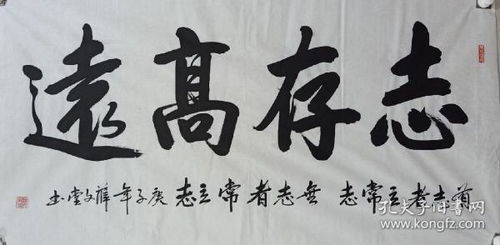 志存高遠
有志者立常志 無志者常立志 庚子年 文堂书
孔夫子旧书网
kongfz.com